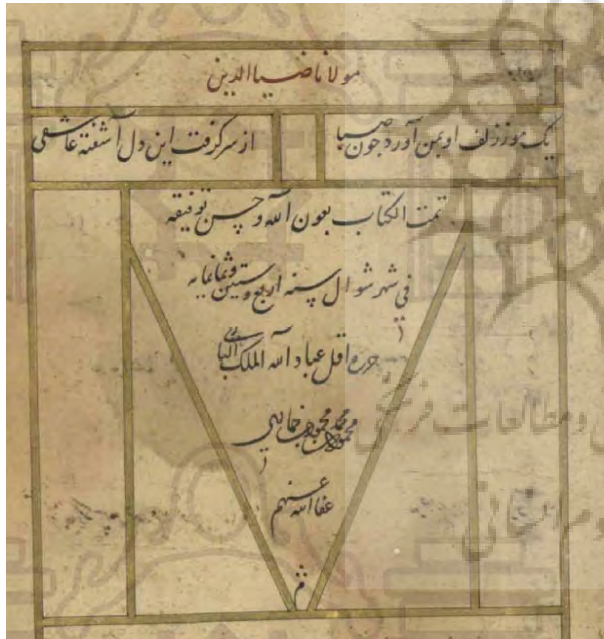 مولانا ضیاالدین
یک مو ز زلف او بمن آورد چون صبا
از سر گرفت این دل آشفته عاشقی
تمت الکتاب بعون الله و حسن توفیقه
فی شهر شوال سنه اربع و ستین و ثمانمایه
حرره اقل عباد الله الملک
محمود
عفا الله عنهم
و مطالعات فرهنگی
وم انسانی